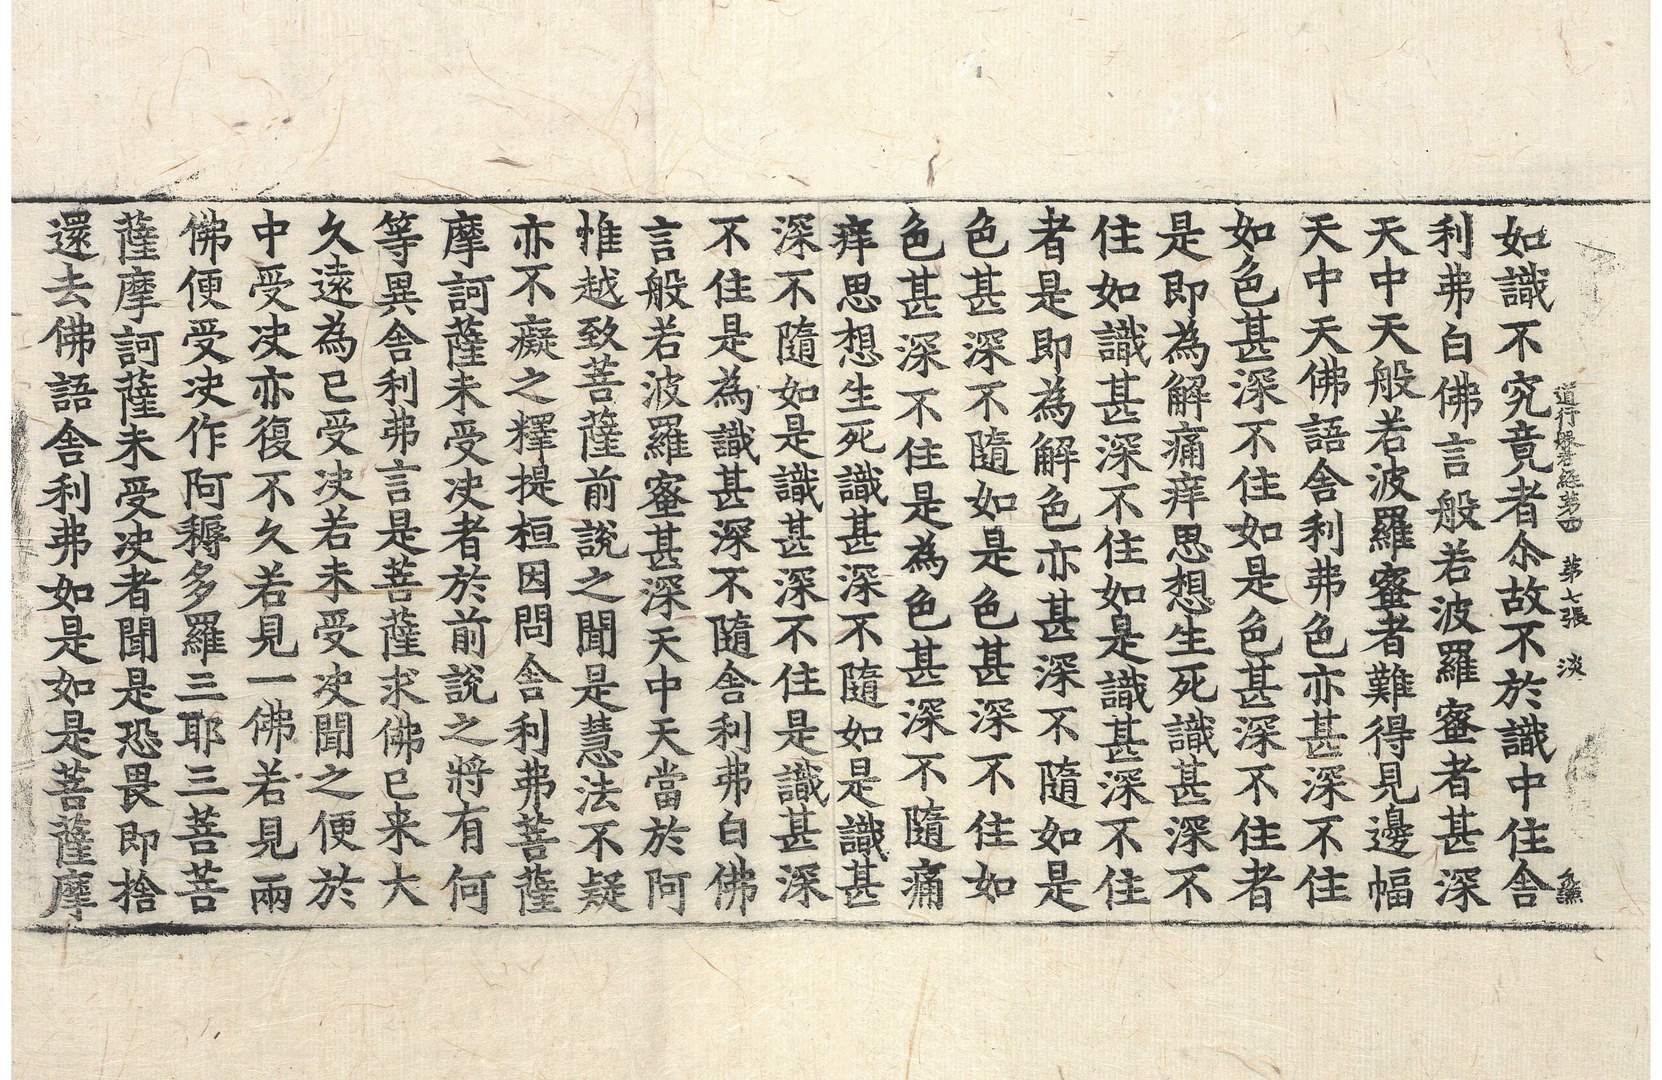 道行般若經第四　第七張　淡
如識不究竟者尒故不於識中住舍
利弗白佛言般若波羅蜜者甚深
天中天般若波羅蜜者難得見邊幅
天中天佛語舍利弗色亦甚深不住
如色甚深不住如是色甚深不住者
是即為解痛痒思想生死識甚深不
住如識甚深不住如是識甚深不住
者是即為解色亦甚深不隨如是
色甚深不隨如是色甚深不住如
色甚深不住是為色甚深不隨痛
痒思想生死識甚深不隨如是識甚
深不隨如是識甚深不住是識甚深
不住是為識甚深不隨舍利弗白佛
言般若波羅蜜甚深天中天當於阿
惟越致菩薩前說之聞是慧法不疑
亦不癡之釋提桓因問舍利弗菩薩
摩訶薩未受决者於前說之將有何
等異舍利弗言是菩薩求佛已来大
久遠為已受决若未受决聞之便於
中受决亦復不久若見一佛若見兩
佛便受决作阿耨多羅三耶三菩菩
薩摩訶薩未受决者聞是恐畏即捨
還去佛語舍利弗如是如是菩薩摩